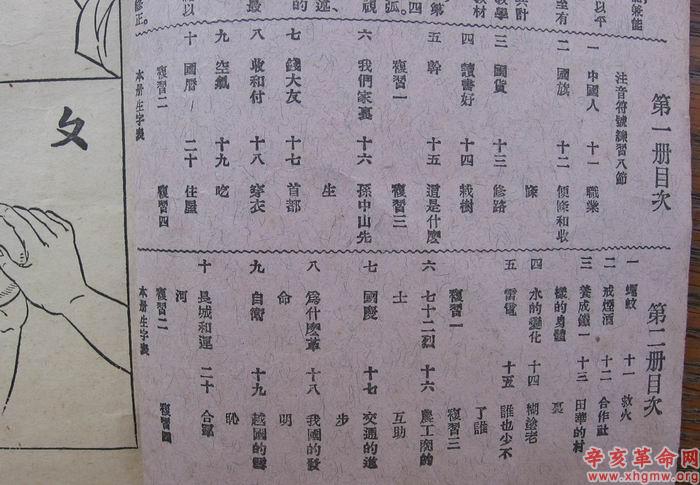 第一册目次
注音符號練習八節
一 中國人 十一 職業
二 國旗 十二 便條和收
條
三 國貨 十三 修路
四 讀書好 十四 栽樹
五 幹 十五 這是什麼
複習一 複習三
六 我們家裏 十六 孫中山先
生
七 錢大友 十七 首都
八 收和付 十八 穿衣
九 空氣 十九 吃
十 國曆 二十 住屋
複習二 複習四
本册生字表
第二册目次
一 蠅蚊 十一 救火
二 戒煙酒 十二 合作社
三 養成鐵一 十三 田華的村
樣的身體 裏
四 水的變化 十四 糊塗老
五 雷電 十五 誰也少不
了誰
複習一 複習三
六 七十二烈 十六 農工商的
士 互助
七 國慶 十七 交通的進
步
八 為什麼革 十八 我國的發
命 明
九 自衛 十九 越國的雪
恥
十 長城和運 二十 合羣
河
複習二 複習四
本册生字表
修正。
文
辛亥革命网
www.xhgmw.org